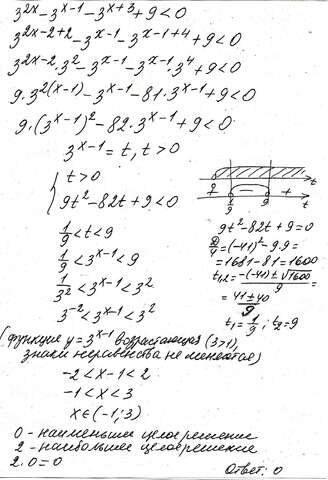 3^{2x} - 3^{x-1} - 3^{x+3} + 9 < 0
3^{2x-2+2} - 3^{x-1} - 3^{x-1+4} + 9 < 0
3^{2x-2} · 3^2 - 3^{x-1} - 3^{x-1} · 3^4 + 9 < 0
9 · 3^{2(x-1)} - 3^{x-1} - 81 · 3^{x-1} + 9 < 0
9 · (3^{x-1})^2 - 82 · 3^{x-1} + 9 < 0
3^{x-1} = t, t > 0
{ t > 0
9t^2 - 82t + 9 < 0
1/9 < t < 9
1/9 < 3^{x-1} < 9
1/3^2 < 3^{x-1} < 3^2
3^{-2} < 3^{x-1} < 3^2
0 t
+ - +
1/9 9 t
9t^2 - 82t + 9 = 0
D/4 = (-41)^2 - 9·9 =
= 1681 - 81 = 1600
t_{1,2} = (-(-41) ± √1600)/9 =
= (41 ± 40)/9
t_1 = 1/9 ; t_2 = 9
(функция y = 3^{x-1} возрастающая (3>1),
знаки неравенства не меняются)
-2 < x-1 < 2
-1 < x < 3
x ∈ (-1; 3)
0 - наименьшее целое решение
2 - наибольшее целое решение
2·0 = 0
Ответ: 0